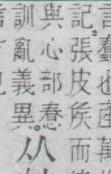 蠢也
記。張皮矦而
與心部惷
訓亂義異。
从